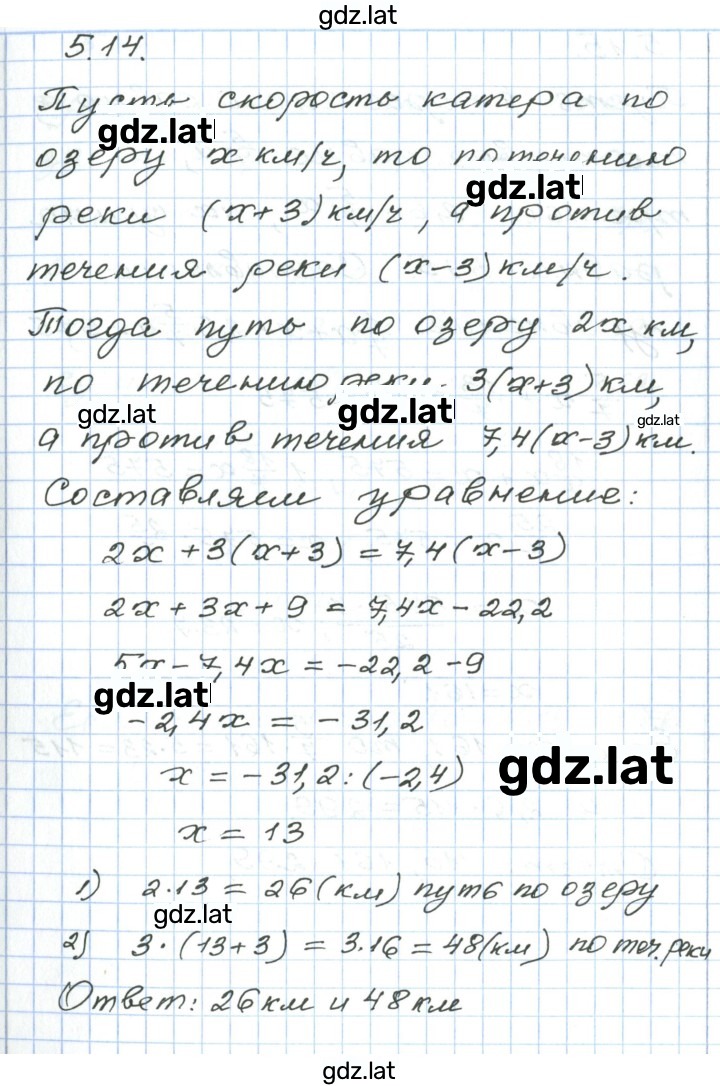 gdz.lat
5.14.
Пусть скорость катера по
gdz.lat
озеру x км/ч, то по течению
gdz.lat
реки (x+3) км/ч, а против
течения реки (x-3) км/ч.
Тогда путь по озеру 2x км,
по течению реки 3(x+3) км,
gdz.lat gdz.lat gdz.lat
а против течения 7,4(x-3) км.
Составляем уравнение:
2x + 3(x+3) = 7,4(x-3)
2x + 3x + 9 = 7,4x - 22,2
5x - 7,4x = -22,2 - 9
gdz.lat
-2,4x = -31,2
x = -31,2 : (-2,4) gdz.lat
x = 13
1) 2·13 = 26 (км) путь по озеру
gdz.lat
2) 3·(13+3) = 3·16 = 48 (км) по теч. реки
Ответ: 26 км и 48 км
gdz.lat